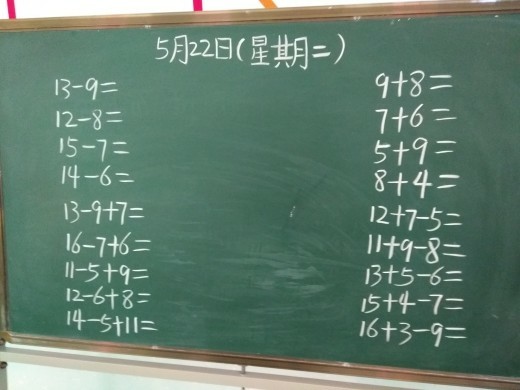 5月22日(星期二)
13-9=
12-8=
15-7=
14-6=
13-9+7=
16-7+6=
11-5+9=
12-6+8=
14-5+11=
9+8=
7+6=
5+9=
8+4=
12+7-5=
11+9-8=
13+5-6=
15+4-7=
16+3-9=